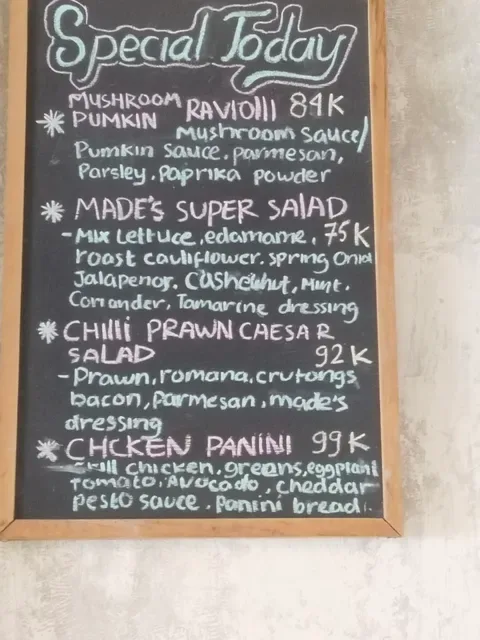 Special Today
MUSHROOM
* PUMKIN RAVIOlII 84K
Mushroom sauce/
Pumkin sauce, parmesan,
Parsley, Paprika powder
* MADE'S SUPER SALAD
- Mix Lettuce, edamame, 75K
roast cauliflower, spring Onion
Jalapenor, Cashewnut, Mint,
Coriander, Tamarine dressing
* CHIlli PRAWN CAESAR
SALAD 92K
- Prawn, romana, crutongs
bacon, Parmesan, made's
dressing
* CHCKEN PANINI 99K
chicken, greens, eggplant
Tomato, Avocado, cheddar
Pesto sauce, Panini bread.